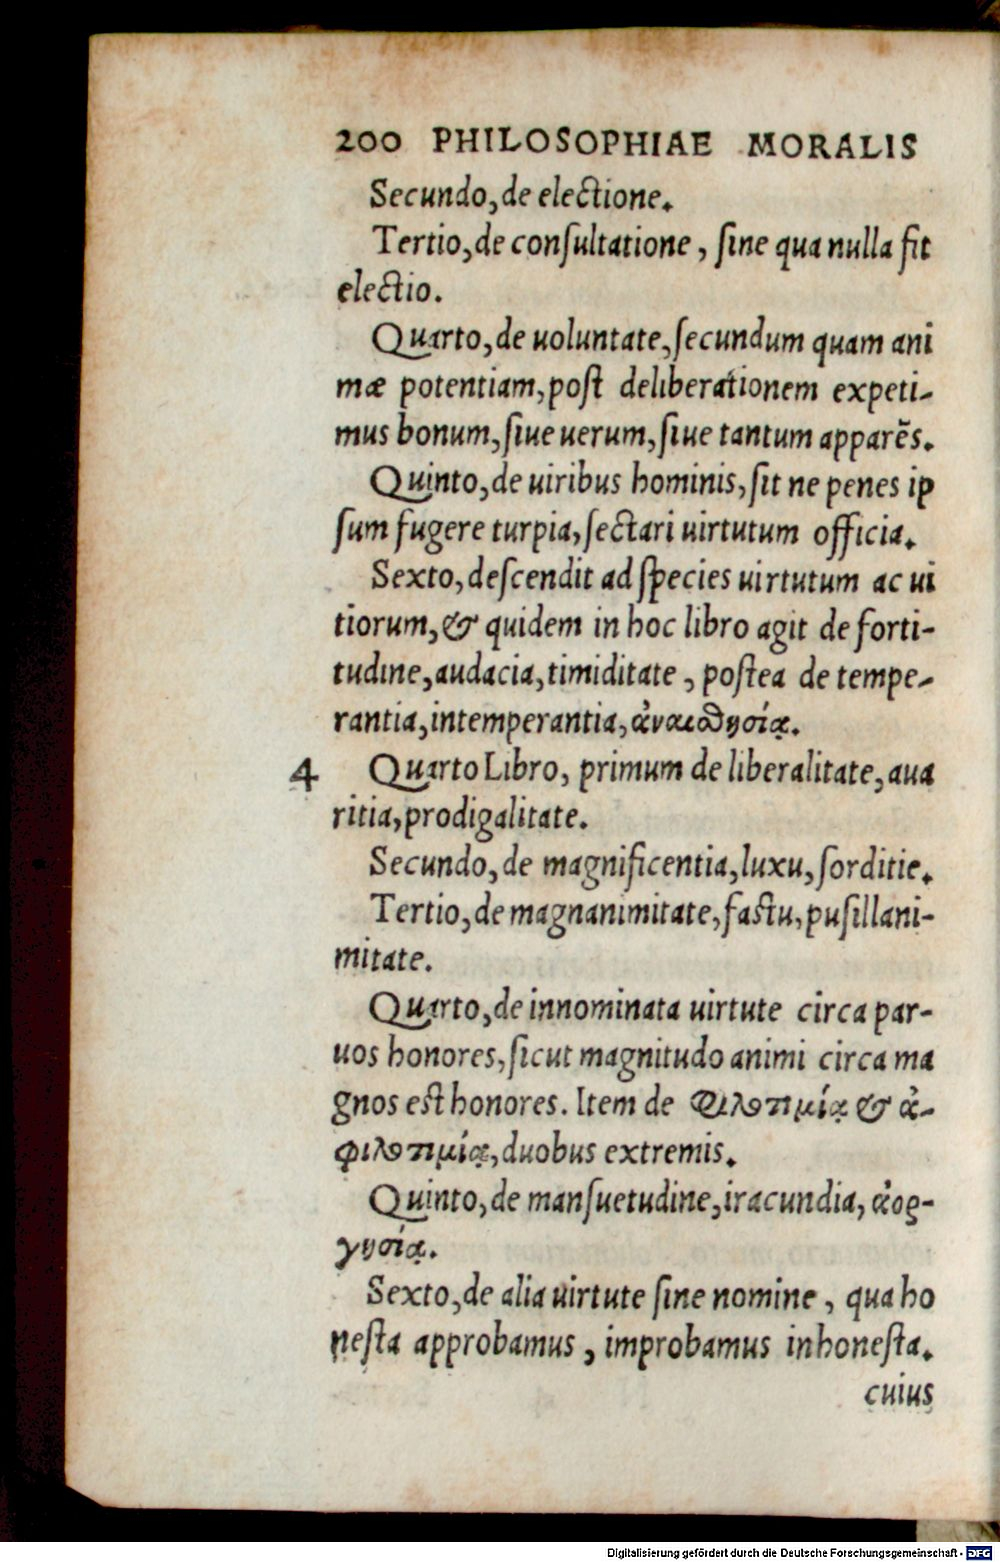 200 PHILOSOPHIAE MORALIS
Secundo, de electione.
Tertio, de conſultatione, ſine qua nulla fit
electio.
Quarto, de uoluntate, ſecundum quam ani
mæ potentiam, poſt deliberationem expeti-
mus bonum, ſiue uerum, ſiue tantum apparẽs.
Quinto, de uiribus hominis, ſit ne penes ip
ſum fugere turpia, ſectari uirtutum officia.
Sexto, deſcendit ad ſpecies uirtutum ac ui
tiorum, & quidem in hoc libro agit de forti-
tudine, audacia, timiditate, poſtea de tempe-
rantia, intemperantia, ἀναισθησίᾳ.
4 Quarto Libro, primum de liberalitate, aua
ritia, prodigalitate.
Secundo, de magnificentia, luxu, ſorditie.
Tertio, de magnanimitate, faſtu, puſillani-
mitate.
Quarto, de innominata uirtute circa par-
uos honores, ſicut magnitudo animi circa ma
gnos eſt honores. Item de Φιλοτιμίᾳ & ἀ-
φιλοτιμίᾳ, duobus extremis.
Quinto, de manſuetudine, iracundia, ἀορ-
γησίᾳ.
Sexto, de alia uirtute ſine nomine, qua ho
neſta approbamus, improbamus inhoneſta.
cuius
Digitalisierung gefördert durch die Deutsche Forschungsgemeinschaft - DFG